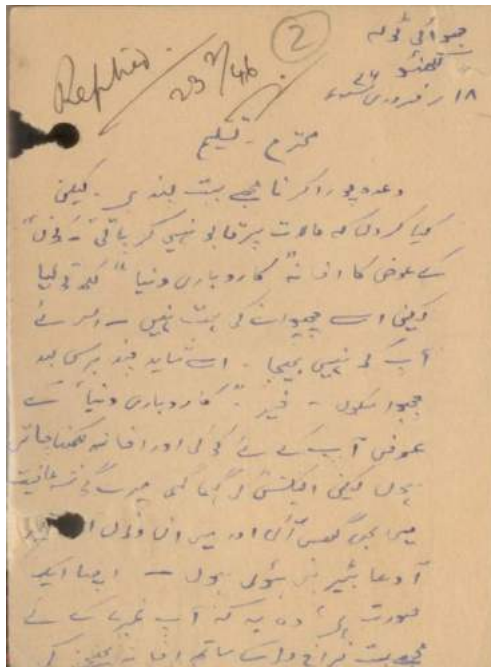 Replied.
23 2/46
2
لکھنؤ
۱۸ ر فروری ۴۶ء
محترم - تسلیم
وعدہ پورا کرنا مجھے بہت پسند ہے - لیکن
کیا کروں کہ حالات پر قابو نہیں کر پاتی -
کے عوض کا افسانہ "کاروباری دنیا" لکھ تو لیا
لیکن اسے چھپوانے کی ہمت نہیں - اس لئے
آپ کو نہیں بھیجا - اسے شاید چند برس بعد
چھپوا سکوں - خیر "کاروباری دنیا" کے
عوض آپ کے لئے کوئی اور افسانہ لکھنا چاہتی
ہوں لیکن الیکشن کی گہما گہمی میرے گوشہ عافیت
میں بھی گھس آئی اور میں ان دنوں
آدھا بٹیر بنی ہوئی ہوں - اچھا ایک
صورت ہے، وہ یہ کہ آپ غریب کے لئے